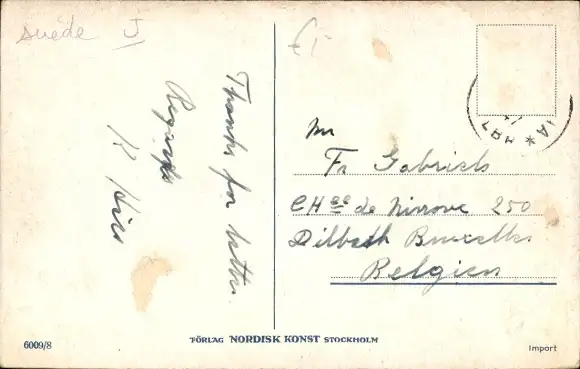 suède J
£1-
Thanks for letter.
Regards
K
Mr
Fr Gabriels
CHée de Ninove 250
Dilbeek Bruxelles
Belgien
6009/8
FÖRLAG NORDISK KONST STOCKHOLM
Import